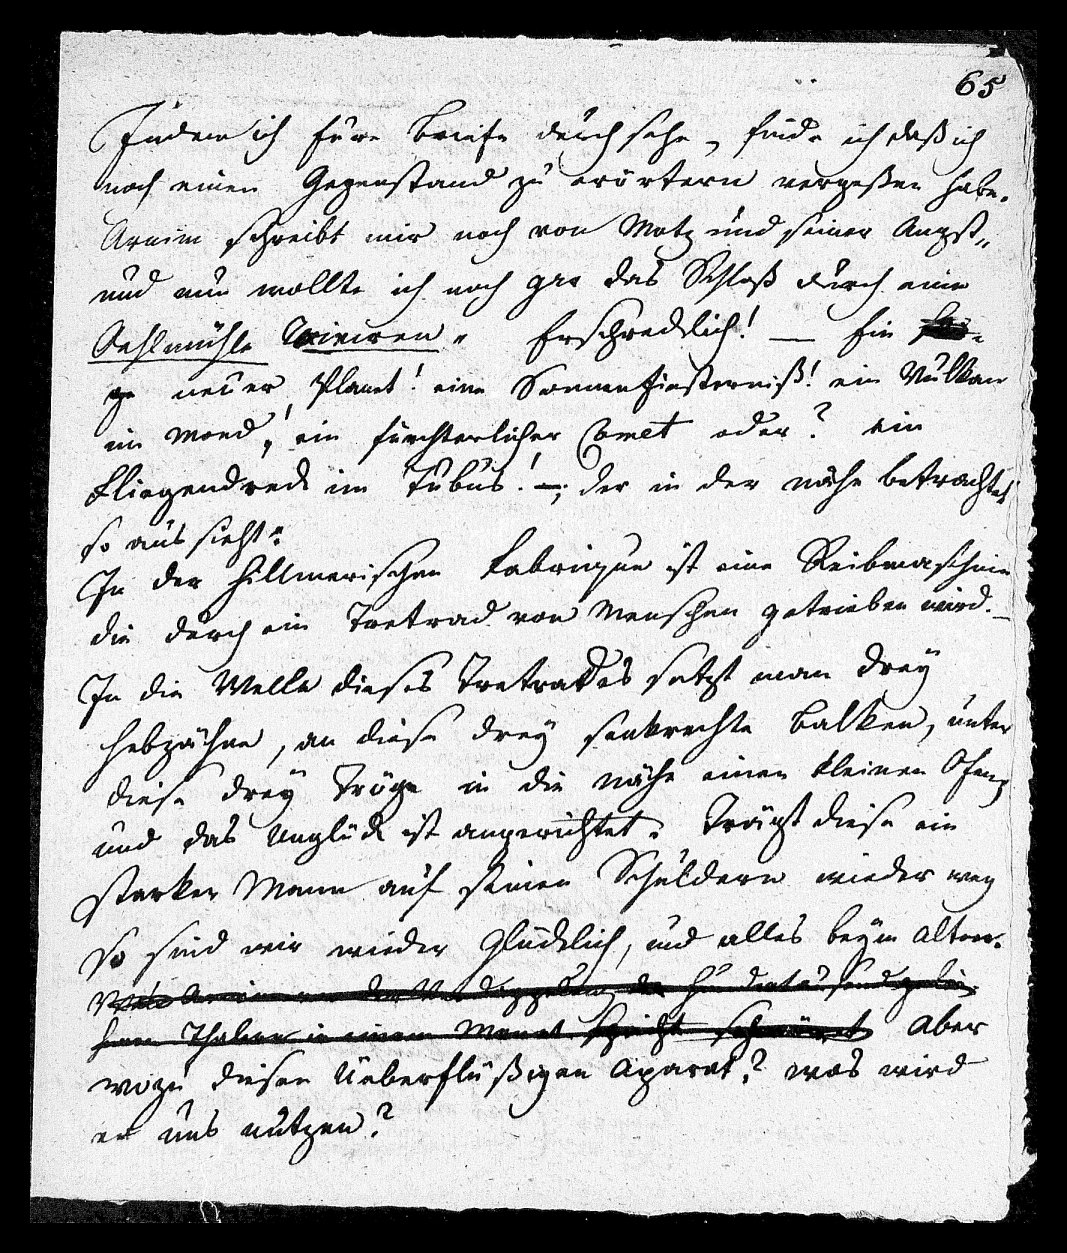 65
Indem ich Eure Briefe durchsehe, finde ich daß ich
noch einen Gegenstand zu erörtern vergeßen habe.
Arnim schreibt mir noch von Motz und seiner Angst,,
und nun wollte ich noch gar das Schloß durch eine
Oehlmühle ruiniren. Erschrecklich! — Ein
ge neuer Planet! eine Sonnenfinsterniß! ein Vulkan
im Mond,! ein fürchterlicher Comet oder? ein
Fliegendreck im Tubus! —; der in der nähe betrachtet
so aus sieht:
In der Hillmerischen Fabrique ist eine Reibmaschine
die durch ein Tretrad von Menschen getrieben wird. –
In die Welle dieses Tretrades setzt man drey
Hebzähne, an diese drey senkrechte Balken, unter
diese drey Tröge in die nähe einen kleinen Ofen,
und das Unglück ist angerichtet. Trägt diese ein
starker Mann auf seinen Schuldern wieder weg
so sind wir wieder Glücklich, und alles beym alten.
Arnim von der Verdoppelung der Hunderttausend
Thalern in einem Monat spricht Aber
wozu diesen Ueberflüßigen Aparat,? was wird
er uns nutzen?